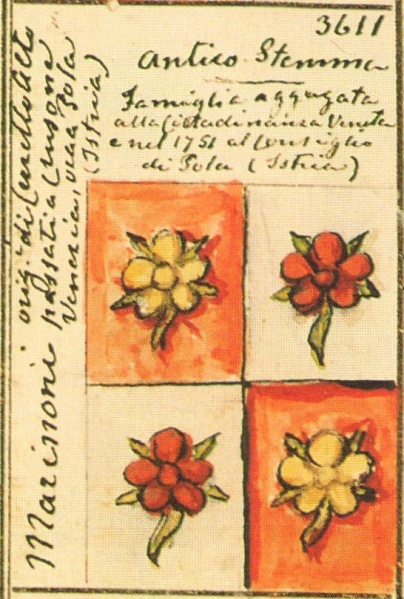 3611
Antico Stemma
Famiglia aggregata
alla Cittadinanza Veneta
e nel 1751 al Consiglio
di Pola (Istria)
Marinoni orig. di
passati a Clusone
Venezia, Pola
(Istria)